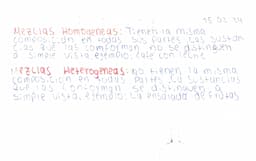 15 02 24
Mezclas Homogeneas: Tienen la misma
composicion en todas sus partes las sustan
cias que las comforman no se distinguen
a simple vista ejemplo: cafe con leche
Mezclas Heterogeneas: no tienen la misma
composicion en todas partes la sustancias
que las conforman se distinguen a
simple vista, ejemplo: La ensalada de frutas